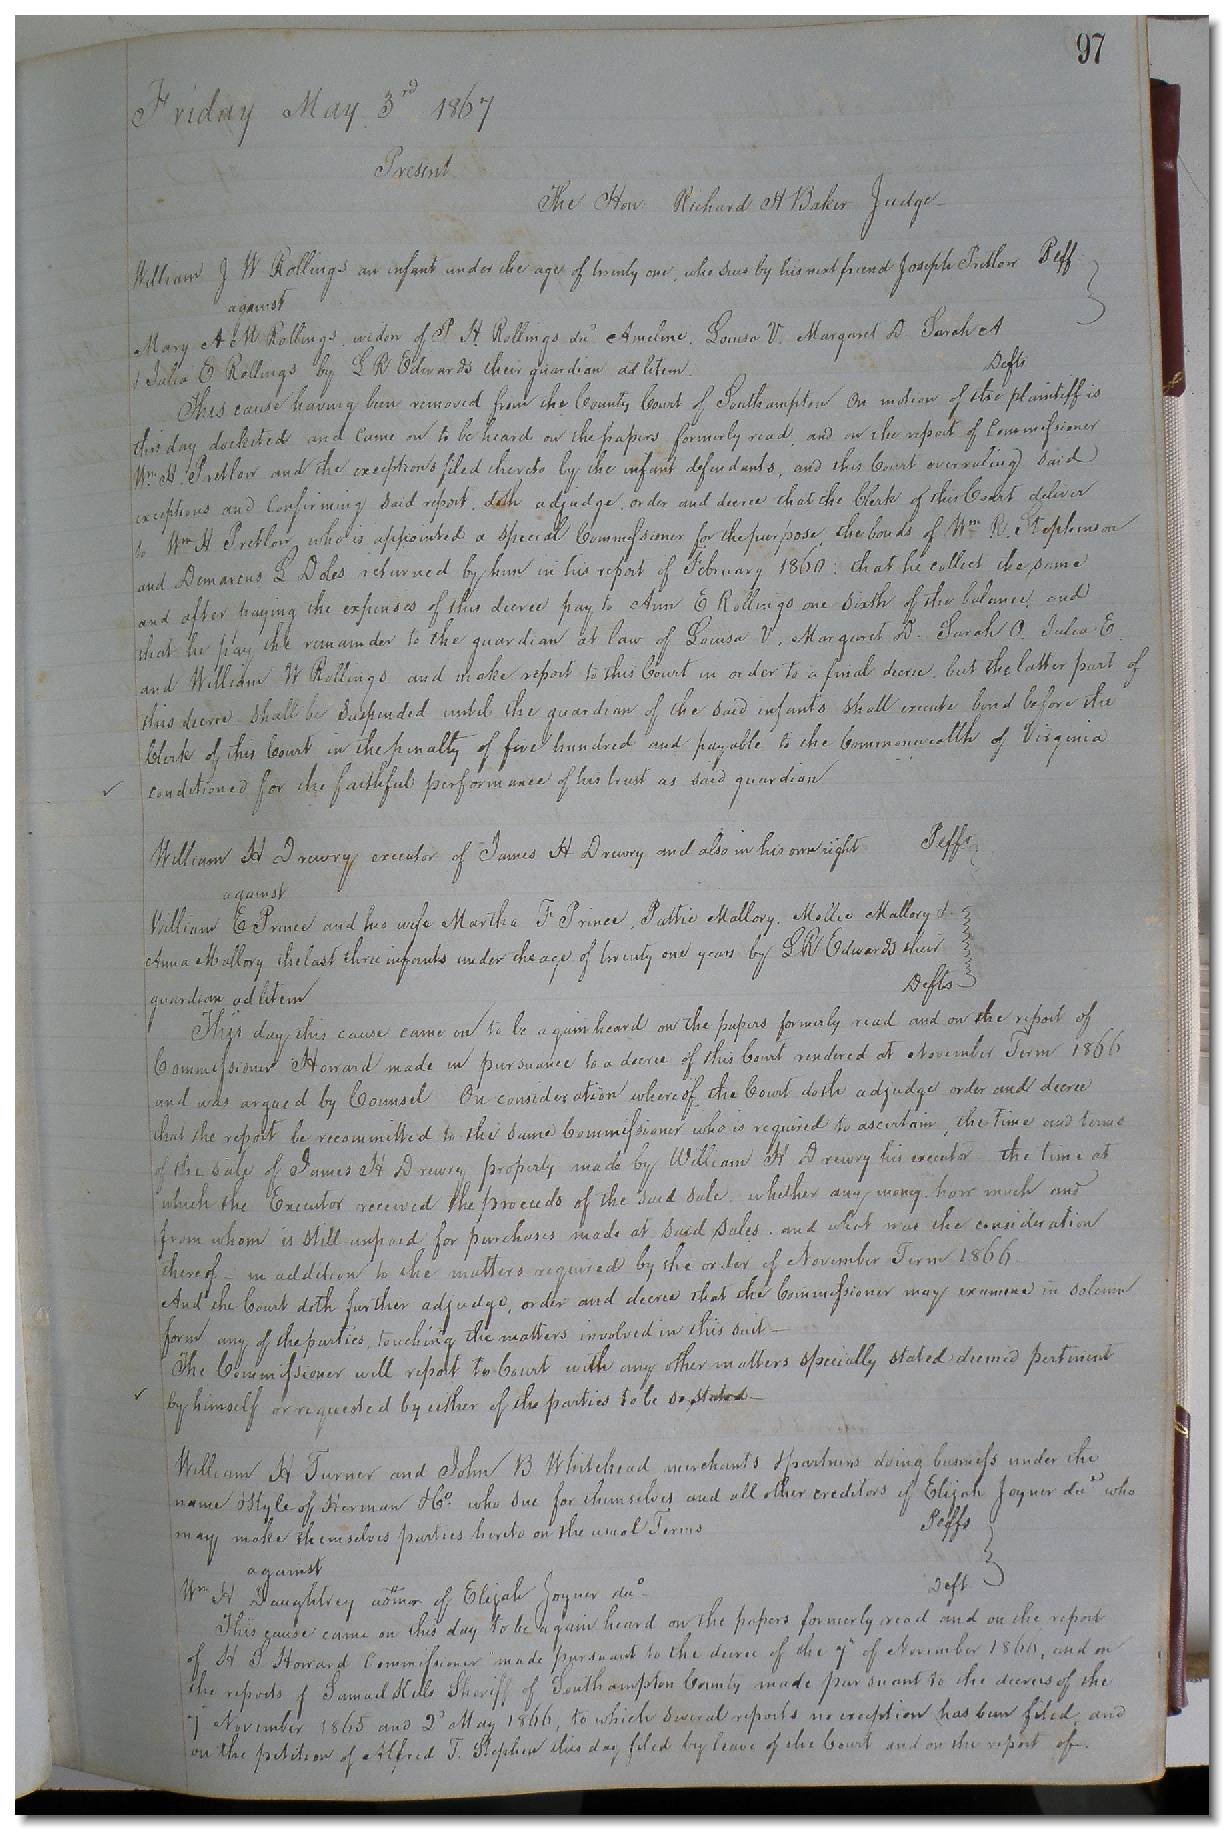 97
Friday May 3rd 1867
Present
The Hon. Richard H Baker Judge
William J W Rollings an infant under the age of twenty one, who sues by his next friend Joseph Pretlow Plff
against
Mary A E W Rollings, widow of P. H. Rollings decd Ameline, Louisa V. Margaret D. Sarah A
& Julia E Rollings by L R Edwards their guardian ad litem. Defts
This cause having been removed from the County Court of Southampton On motion of the plaintiff is
this day docketed and came on to be heard on the papers formerly read, and on the report of Commissioner
Wm H. Pretlow and the exceptions filed thereto by the infant defendants, and this Court overruling said
exceptions and confirming said report, doth adjudge, order and decree that the Clerk of this Court deliver
to Wm H Pretlow, who is appointed a special Commissioner for the purpose, the bonds of Wm R. Stephenson
and Demarcus L Doles returned by him in his report of February 1860: that he collect the same
and after paying the expenses of this decree pay to Ann E Rollings one sixth of the balance, and
that he pay the remainder to the guardian at law of Louisa V, Margaret D. Sarah O. Julia E.
and William W Rollings and make report to this Court in order to a final decree. but the latter part of
this decree shall be suspended until the guardian of the said infants shall execute bond before the
Clerk of this Court in the penalty of five hundred and payable to the Commonwealth of Virginia
conditioned for the faithful performance of his trust as said guardian
William H Drewry executor of James H Drewry and also in his own right Plffs
against
William E Prince and his wife Martha F Prince, Pattie Mallory, Mollie Mallory &
Anna Mallory the last three infants under the age of twenty one years by L R Edwards their
guardian ad litem Defts
This day this cause came on to be again heard on the papers formerly read and on the report of
Commissioner Howard made in pursuance to a decree of this Court rendered at November Term 1866
and was argued by Counsel On consideration whereof the Court doth adjudge order and decree
that the report be recommitted to the same Commissioner who is required to ascertain, the time and terms
of the sale of James H Drewry property made by William H Drewry his executor the time at
which the Executor received the proceeds of the said sale. whether any money, how much and
from whom is still unpaid for purchases made at said sales. and what was the consideration
thereof - in addition to the matters required by the order of November Term 1866.
And the Court doth further adjudge, order and decree that the Commissioner may examine in solemn
form any of the parties, touching the matters involved in this suit -
The Commissioner will report to Court with any other matters specially stated deemed pertinent
by himself or requested by either of the parties to be so stated -
William H Turner and John B Whitehead merchants & partners doing business under the
name & Style of Kerman & Co. who sue for themselves and all other creditors of Elijah Joyner decd who
may make themselves parties hereto on the usual Terms Plffs
against
Wm H Daughtrey admr of Elijah Joyner decd Deft
This cause came on this day to be again heard on the papers formerly read and on the report
of H S Howard Commissioner made pursuant to the decree of the 7th of November 1866, and on
the reports of Samuel Kello Sheriff of Southampton County made pursuant to the decrees of the
7 November 1865 and 2d May 1866, to which several reports no exception has been filed, and
on the petition of Alfred T. Stephen this day filed by leave of the Court and on the report of